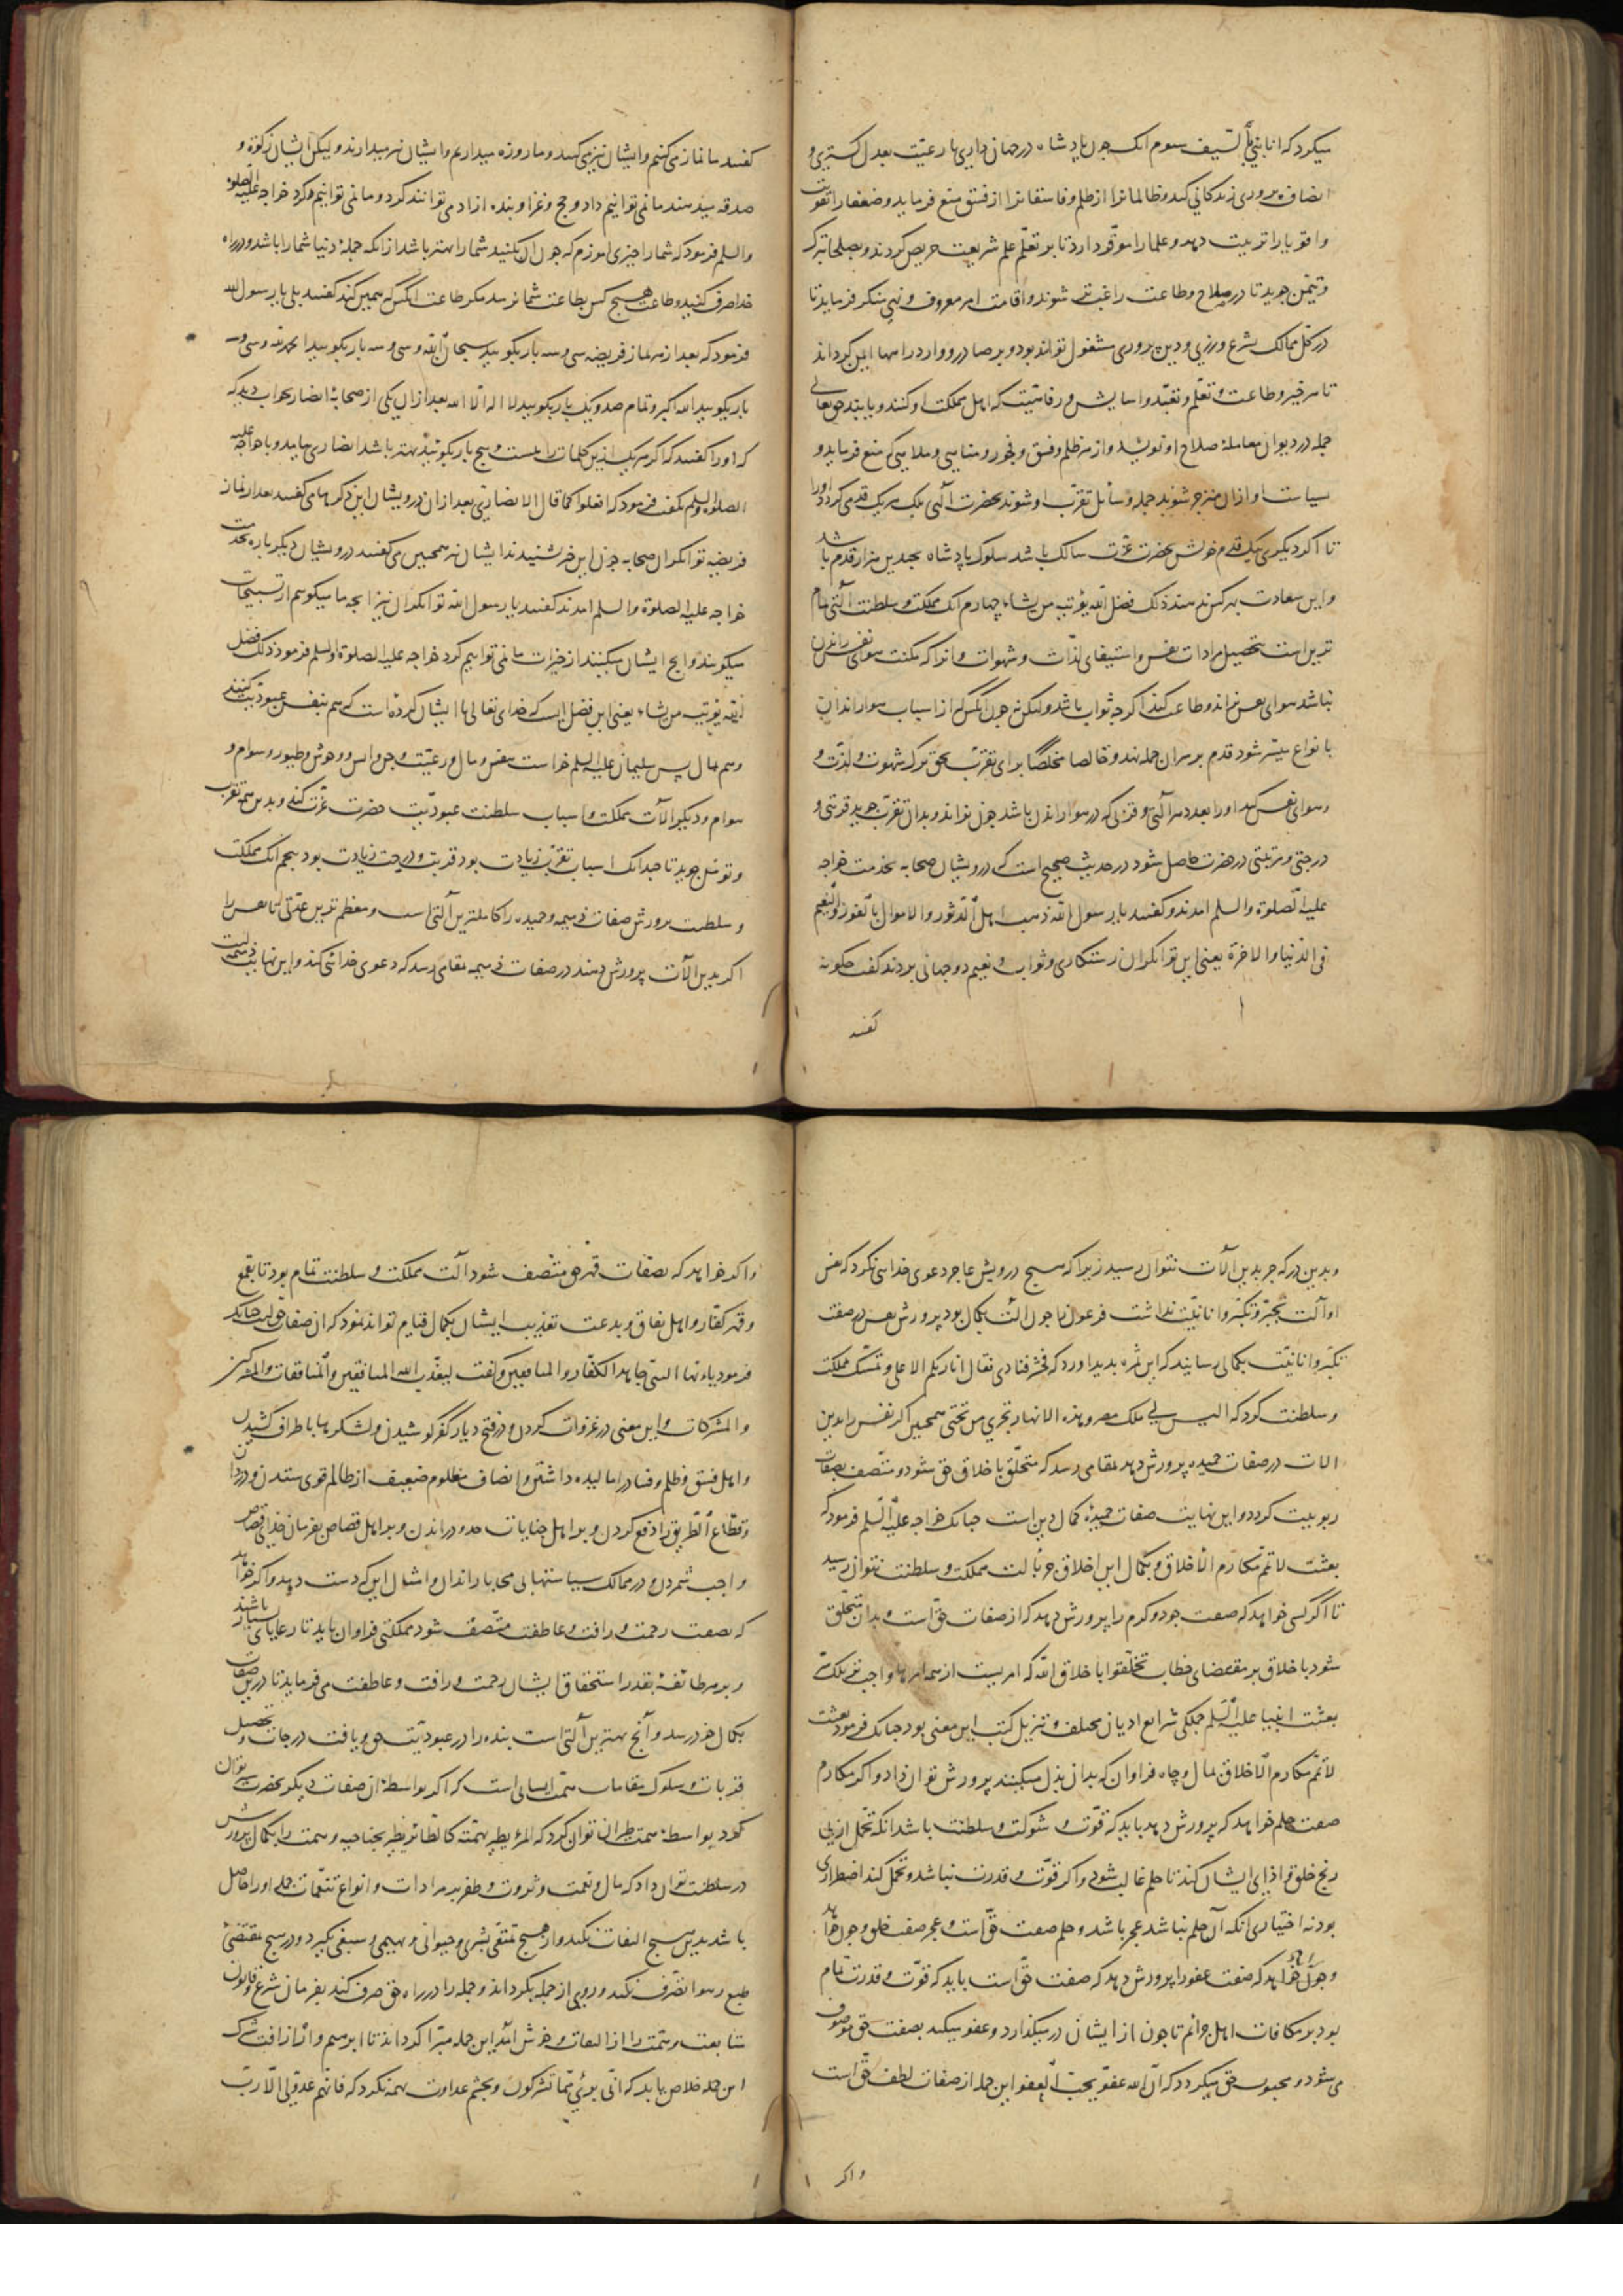 میکرد که انا نبی بالسیف سوم انک چون پادشاه در جهان داری با رعیت بعدل کستری و
انصاف پروری زندکانی کند و ظالمانرا از ظلم و فاسقانرا از فسق منع فرماید و ضعفا را تقویت
و اقویا را تربیت دهد و علما را موقر دارد تا بر تعلم علم شریعت حریص کردند و بصلحا تبرک
و تیمن جوید تا در صلاح و طاعت راغب تر شوند و اقامت امر معروف و نهی منکر فرماید تا
در کل ممالک بشرع ورزیی و دین پروری مشغول توانند بود و برصادر و وارد راهها ایمن کرداند
تا هر خیر و طاعت و تعلم و تعبد و اسایش و رفاهیت که اهل مملکت او کنند و یابند حق تعالی
جمله در دیوان معاملهٔ صلاح او نویسد و از هر ظلم و فسق و فجور و مناهی و ملاهی که منع فرماید و
سیاست او ازان منزجر شوند جمله وسایل تقرب او شوند بحضرت الهی بلک هر یک قدمی کردد او را
تا اکر دیکری بیک قدم خویش بحضرت عزت سالک باشد سلوک پادشاه بچندین هزار قدم باشد
و این سعادت بهر کس ندهند ذلک فضل الله یؤتیه من یشاء چهارم انک مملکت و سلطنت آلتی تمام
ترین است تحصیل مرادات نفس و استیفای لذات و شهوات و انرا که مکنت هوای نفس راندن
نباشد هوای نفس نراند و طاعت کند اکرچه ثواب باشد ولیکن نه چون انکس که از اسباب هوا راندن
بانواع میسر شود قدم بر سر ان جمله نهد و خالصا مخلصا برای تقرب بحق ترک شهوت و لذت و
هوای نفس کند او را بعدد هر آلتی و قوتی که در هوا راندن باشد چون نراند و بدان تقرب جوید قربتی و
درجتی و مرتبتی در حضرت حاصل شود در حدیث صحیح است که درویشان صحابه بخدمت خواجه
علیه الصلوة والسلم امدند و کفتند یا رسول الله ذهب اهل الدثور والاموال بالفوز والنعیم
فی الدنیا والاخرة یعنی این توانکران رستکاری و ثواب و نعیم دو جهانی بردند کفت چکونه
کفتند
کفتند ما نماز می کنیم و ایشان نیز می کنند و ما روزه میداریم و ایشان نیز میدارند ولیکن ایشان زکوة و
صدقه میدهند ما نمی توانیم داد و حج و غزا و بنده ازاد می توانند کرد و ما نمی توانیم کرد خواجه علیه الصلوة
والسلم فرمود که شما را چیزی اموزم که چون ان بکنید شما را بهتر باشد ازانکه جملهٔ دنیا شما را باشد و در راه
خدا صرف کنید و طاعت هیچ کس بطاعت شما نرسد مکر طاعت انکس که همین کند کفتند بلی یا رسول الله
فرمود که بعد از هر نماز فریضه سی و سه بار بکویید سبحان الله و سی و سه بار بکویید الحمد لله و سی و سه
بار بکویید الله اکبر و تمام صد و یک بار بکویید لا اله الا الله بعد ازان یکی از صحابهٔ انصار بخواب دید که
که او را کفتند که اکر هر یک ازین کلمات را بیست و پنج بار بکویید بهتر باشد انصاری بیامد و با خواجه علیه
الصلوة والسلم بکفت فرمود که افعلوا کما قال الانصاری بعد ازان درویشان این ذکرها می کفتند بعد از نماز
فریضه توانکران صحابه چون این خبر شنیدند ایشان نیز همچنین می کفتند درویشان دیکر باره بخدمت
خواجه علیه الصلوة والسلم امدند کفتند یا رسول الله توانکران نیز انچه ما میکوییم از تسبیحات
میکویند و انچ ایشان میکنند از خیرات ما نمی توانیم کرد خواجه علیه الصلوة والسلم فرمود ذلک فضل
الله یؤتیه من یشاء یعنی این فضل ایست که خدای تعالی با ایشان کرده است که هم بنفس عبودیت کنند
و هم بمال پس سلیمان علیه السلم خواست بنفس و مال و رعیت و جن و انس و وحوش و طیور و سوام و
هوام و دیکر الات مملکت و اسباب سلطنت عبودیت حضرت عزت کند و بدین همه تقرب
و توسل جوید تا چندانک اسباب تقرب زیادت بود قربت و درجت زیادت بود پنجم انک مملکت
و سلطنت پرورش صفات ذمیمه و حمیده را کاملترین آلتی است و معظم ترین عدتی تا نفس را
اکر بدین الات پرورش دهند در صفات ذمیمه بمقامی رسد که دعوی خدائی کند و این نهایت ذمیمه است
و بدین درکه جز بدین الات نتوان رسید زیرا که هیچ درویش عاجز دعوی خدایی نکرد که نفس
او آلت تجبر و تکبر و انانیت نداشت فرعون را چون الت بکمال بود پرورش نفس در صفت
تکبر و انانیت بکمالی رسانید که این ثمره پدید اورد که فحشر فنادی فقال انا ربکم الاعلی و تمسک بمملکت
و سلطنت کرد که الیس لی ملک مصر و هذه الانهار تجری من تحتی همچنین اکر نفس را بدین
الات در صفات حمیده پرورش دهد بمقامی رسد که متخلق باخلاق حق شود و متصف بصفات
ربوبیت کردد و این نهایت صفات حمیده کمال دین است چنانک خواجه علیه السلم فرمود که
بعثت لاتمم مکارم الاخلاق و بکمال این اخلاق جز بالت مملکت و سلطنت نتوان رسید
تا اکر کسی خواهد که صفت جود و کرم را پرورش دهد که از صفات حق است و بدان متخلق
شود باخلاق بر مقتضای خطاب تخلقوا باخلاق الله که امریست از همه امرها واجب تر بلک سر
بعثت انبیا علیه السلم جملکی شرایع ادیان مختلف و تنزیل کتب این معنی بود چنانک فرمود بعثت
لاتمم مکارم الاخلاق بمال و جاه فراوان که بدان بذل میکنند پرورش توان داد و اکر مکارم
صفت حلم خواهد که پرورش دهد باید که قوت و شوکت و سلطنت باشد انکه تحمل از پی
رنج خلق و اذای ایشان کند تا حلم غالب شود و اکر قوت و قدرت نباشد و تحمل کند اضطراری
بود نه اختیاری انکه آن حلم نباشد عجز باشد و حلم صفت حق است و عجز صفت خلق و چون خواهد
و چون خواهد که صفت عفو را پرورش دهد که صفت حق است باید که قوت و قدرت تمام
بود بر مکافات اهل جرائم تا چون از ایشان در میکذارد و عفو میکند بصفت حق موصوف
می شود و محبوب حق میکردد که ان الله عفو یحب العفو این جمله از صفات لطف حق است
و اکر
و اکر خواهد که بصفات قهر حق متصف شود آلت مملکت و سلطنت تمام بود تا بقمع
و قهر کفار و اهل نفاق و بدعت تعذیب ایشان بکمال قیام تواند نمود که ان صفات حق است چنانک
فرمود یا ایها النبی جاهد الکفار والمنافقین و کفت لیعذب الله المنافقین والمنافقات والمشرکین
والمشرکات و این معنی در غزوات کردن و در فتح دیار کفر کوشیدن و لشکرها باطراف کشیدن
و اهل فسق و ظلم و فساد را مالیده داشتن و انصاف مظلوم ضعیف از ظالم قوی ستدن و دزدان
و قطاع الطریق را دفع کردن و بر اهل جنایات حدود راندن و بر اهل قصاص بفرمان خدای قصاص
واجب شمردن و در ممالک سیاستهای بی محابا راندن و امثال این که دست دهد و اکر خواهد
که بصفت رحمت و رافت و عاطفت متصف شود مملکتی فراوان باید تا رعایای بسیار باشند
و بر هر طائفه بقدر استحقاق ایشان رحمت و رافت و عاطفت می فرماید تا درین صفات
بکمال خود رسد و آنچ بهترین آلتی است بنده را در عبودیت حق و یافت درجات و تحصیل
قربات و سلوک مقامات همت انسانی است که اکر بواسطهٔ ان صفات دیکر بحضرت سیر توان
کرد بواسطهٔ همت طیران توان کرد که المرء یطیر بهمته کالطائر یطیر بجناحیه و همت را بکمال پرورش
در سلطنت توان داد که مال و نعمت و ثروت و ظفر بر مرادات و انواع تنعمات جمله او را حاصل
باشد بدین هیچ التفات نکند و از هیچ تمتعی بشری و حیوانی و بهیمی و سبعی نکیرد و در هیچ بمقتضیٔ
طبع و هوا تصرف نکند و روی از جمله بکرداند و جمله را در راه حق صرف کند بفرمان شرع و قانون
متابعت و همت را از التفات و خوش امد این جمله مبرا کرداند تا ابرهیم وار از آفت شرک
این جمله خلاص یابد که انی بریء مما تشرکون و بچشم عداوت بهمه نکرد که فانهم عدو لی الا رب